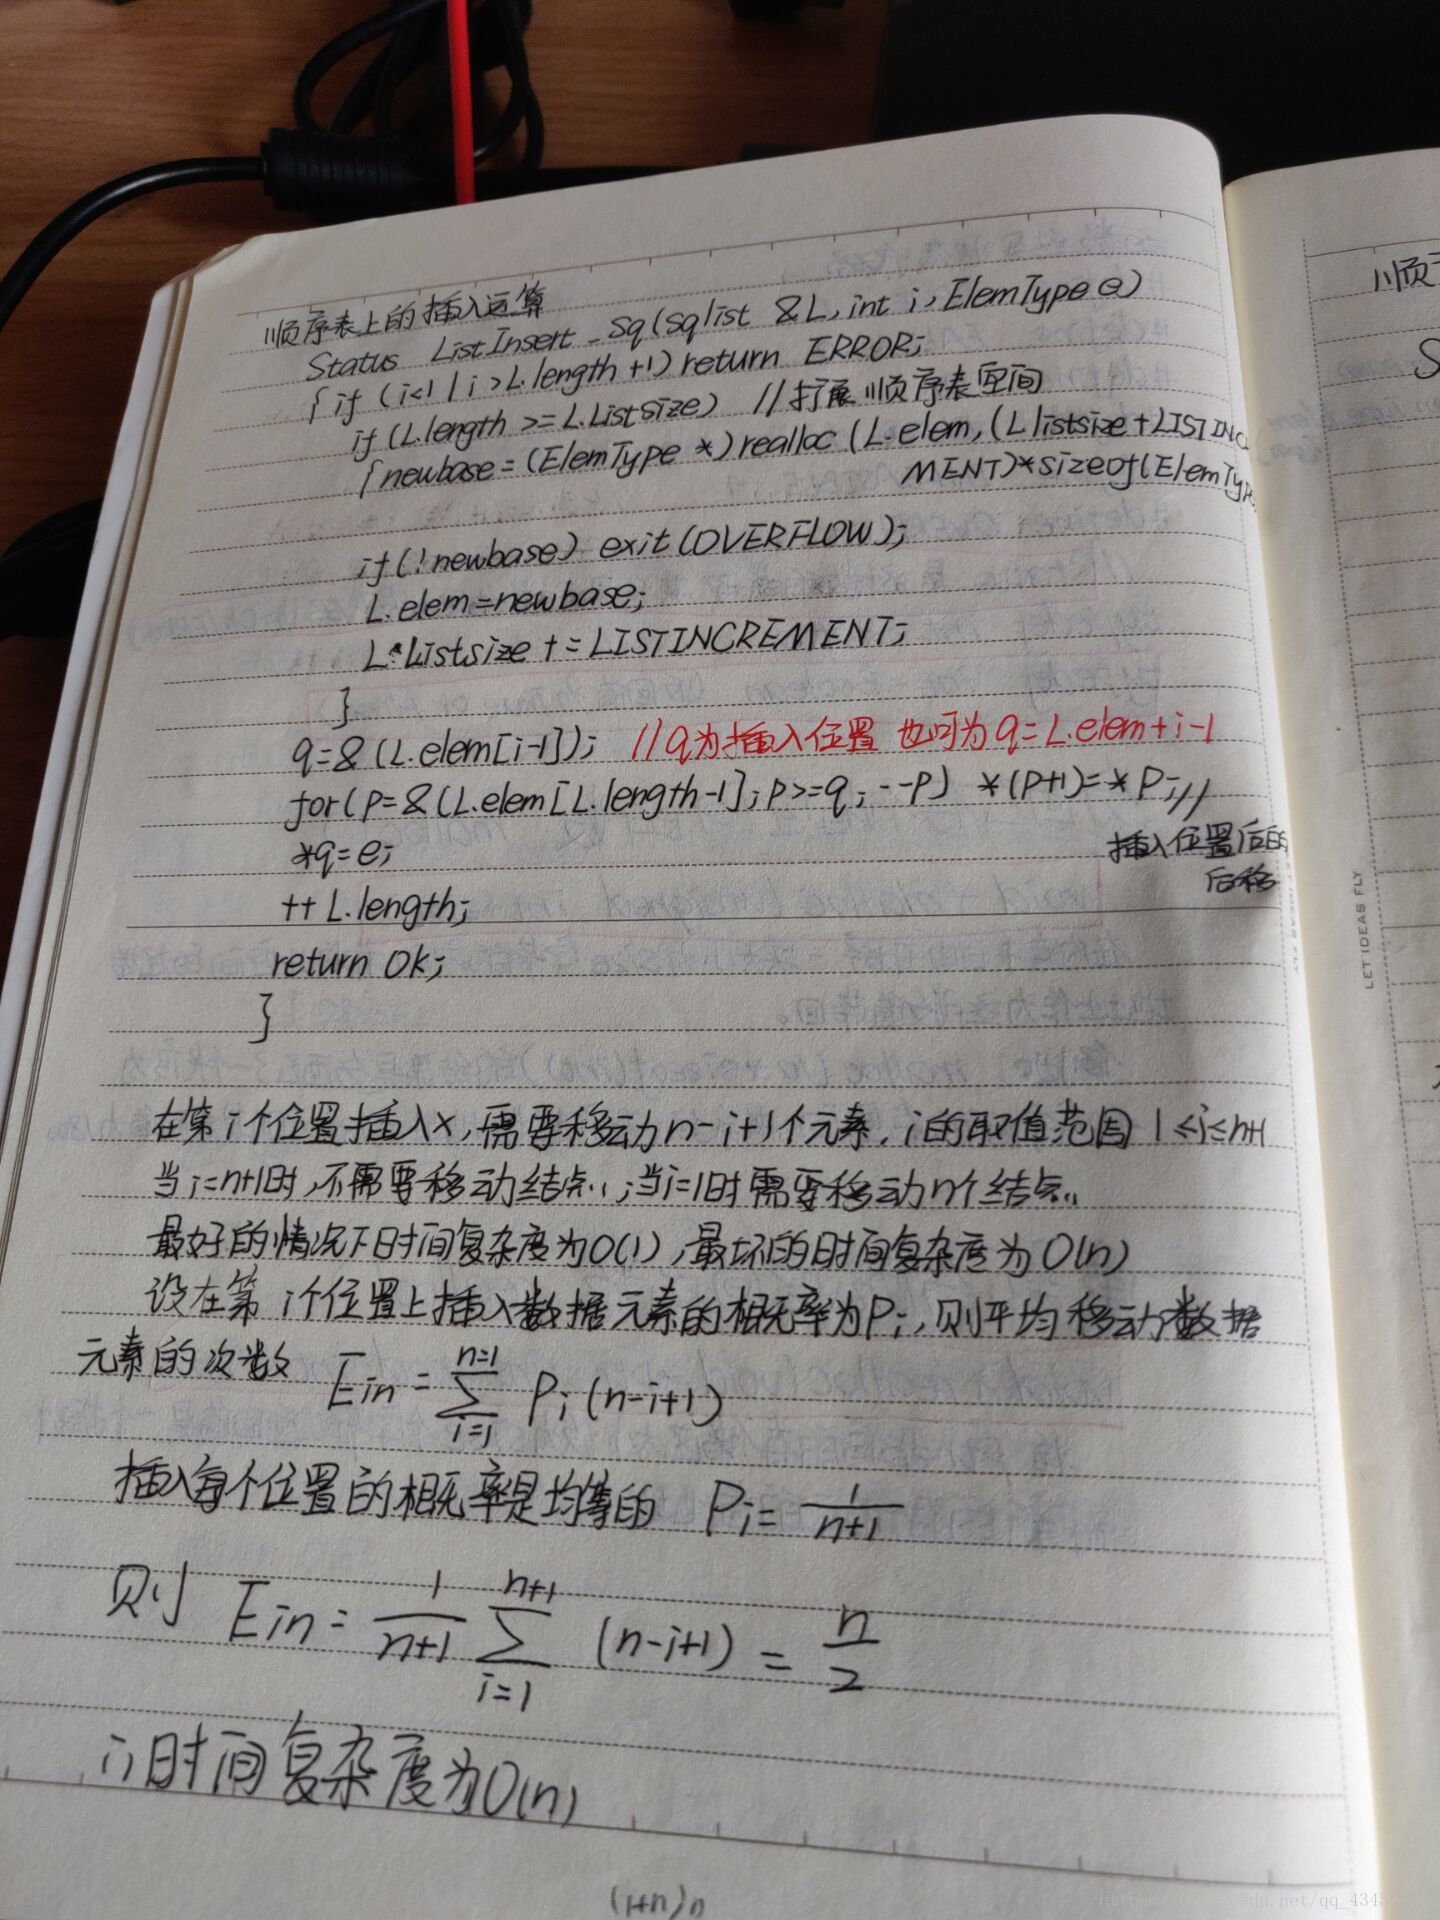 顺序表上的插入运算
Status ListInsert_Sq(Sqlist &L,int i,ElemType e)
{ if (i<1 | i>L.length+1) return ERROR;
if (L.length >= L.Listsize) //扩展顺序表空间
{ newbase=(ElemType *) realloc (L.elem,(L listsize+LISTINC
MENT)*sizeof(ElemType
if(!newbase) exit(OVERFLOW);
L.elem=newbase;
L.Listsize += LISTINCREMENT;
}
q=&(L.elem[i-1]); //q为插入位置 也可为q=L.elem+i-1
for(p=&(L.elem[L.length-1];p>=q;--p) *(p+1)=*p;//
插入位置后的
后移
*q=e;
++L.length;
return Ok;
}
在第i个位置插入x,需要移动n-i+1个元素,i的取值范围 1≤i≤n+1
当i=n+1时,不需要移动结点;当i=1时需要移动n个结点
最好的情况下时间复杂度为O(1),最坏的时间复杂度为O(n)
设在第i个位置上插入数据元素的概率为Pi,则平均移动数据
元素的次数 Ein = ∑_{i=1}^{n=1} Pi(n-i+1)
插入每个位置的概率是均等的 Pi= 1/(n+1)
则 Ein = 1/(n+1) ∑_{i=1}^{n+1} (n-i+1) = n/2
时间复杂度为O(n)
(1+n)n
LET IDEAS FLY
顺
S